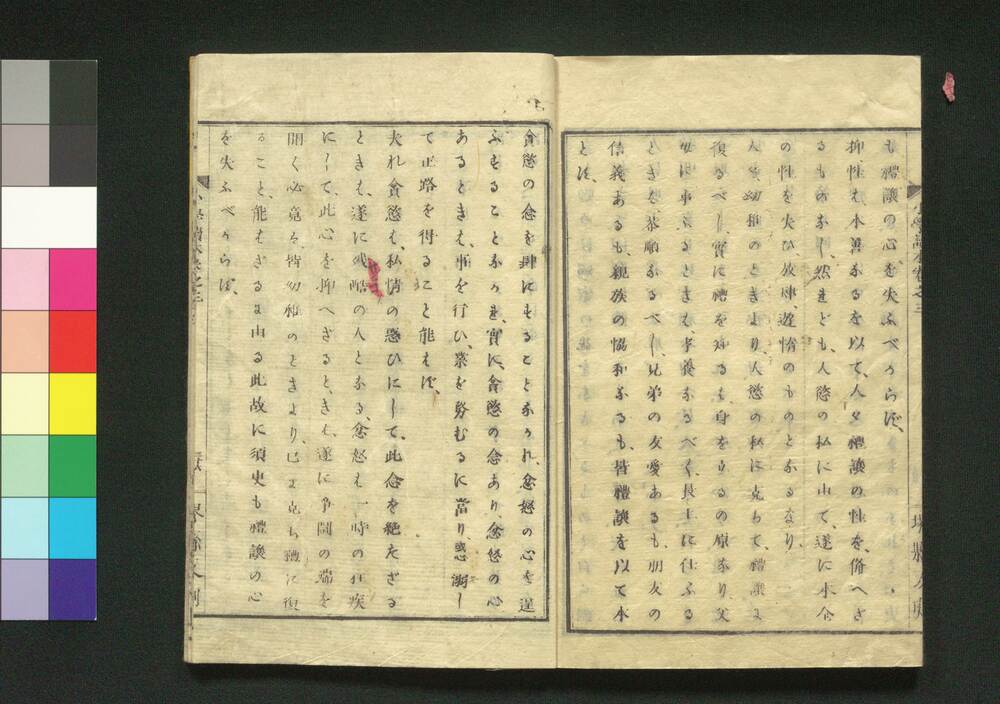 も禮讓の心を失ふべからず、
抑性も本善なるを以て、人々禮讓の性を、脩へざ
るものなし、然れども、人慾の私に由て、遂に本分
の性を失ひ放肆遊惰のものとなるなり、
人々幼稚のときより、人慾の私に克ちて、禮讓に
復るべし、實に禮を知るは、身を立るの原なり、父
母に事ふるときは、孝養なるべく、長上に仕ふる
ときは、恭順なるべし、兄弟の友愛あるも、朋友の
信義あるも、親族の協和なるも、皆禮讓を以て本
とす、
貪慾の念を肆にすることなかれ、忿怒の心を逞
ふすることなかれ、實に、貪慾の念あり、忿怒の心
あるときは、事を行ひ、業を務むるに當り惑溺し
て正路を得ること能はず、
夫れ貪慾は、私情の惑ひにして、此念を絶たざる
ときは、遂に残酷の人となる、忿怒は一時の狂疾
にして、此心を抑へざるときは、遂に爭鬪の端を
開く必竟は、皆幼稚のときより、己に克ち禮に復
ること、能はざるに由る此故に須臾も禮讓の心
を失ふべからず、